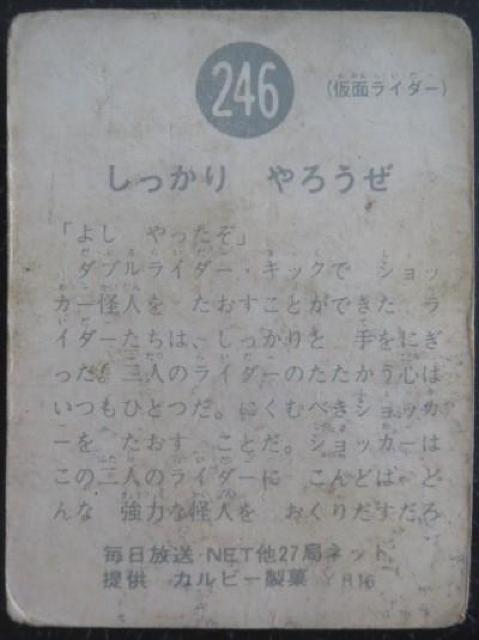 246
(仮面ライダー)
しっかり　やろうぜ
「よし　やったぞ」
ダブルライダー・キックで　ショッ
カー怪人を　たおすことができた　ラ
イダーたちは、しっかりと　手をにぎ
った。二人のライダーのたたかう心は
いつもひとつだ。にくむべきショッカ
ーを　たおす　ことだ。ショッカーは
この二人のライダーに　こんどは、ど
んな　強力な怪人を　おくりだすだろ
毎日放送・NET他27局ネット
提供　カルビー製菓　YR16